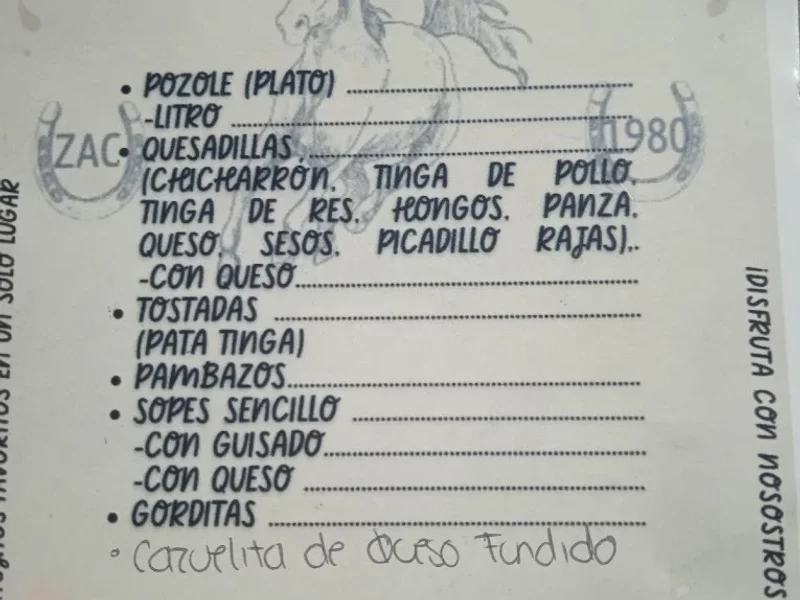 • POZOLE (PLATO) ........................
-LITRO ........................
ZAC
1980
• QUESADILLAS ........................
(CHICHARRON, TINGA DE POLLO,
TINGA DE RES, HONGOS, PANZA,
QUESO, SESOS, PICADILLO RAJAS)..
-CON QUESO........................
• TOSTADAS ........................
(PATA TINGA)
• PAMBAZOS........................
• SOPES SENCILLO ........................
-CON GUISADO........................
-CON QUESO ........................
• GORDITAS ........................
• Cazuelita de Queso Fundido
FAVORITOS EN UN SOLO LUGAR
¡DISFRUTA CON NOSOSTROS